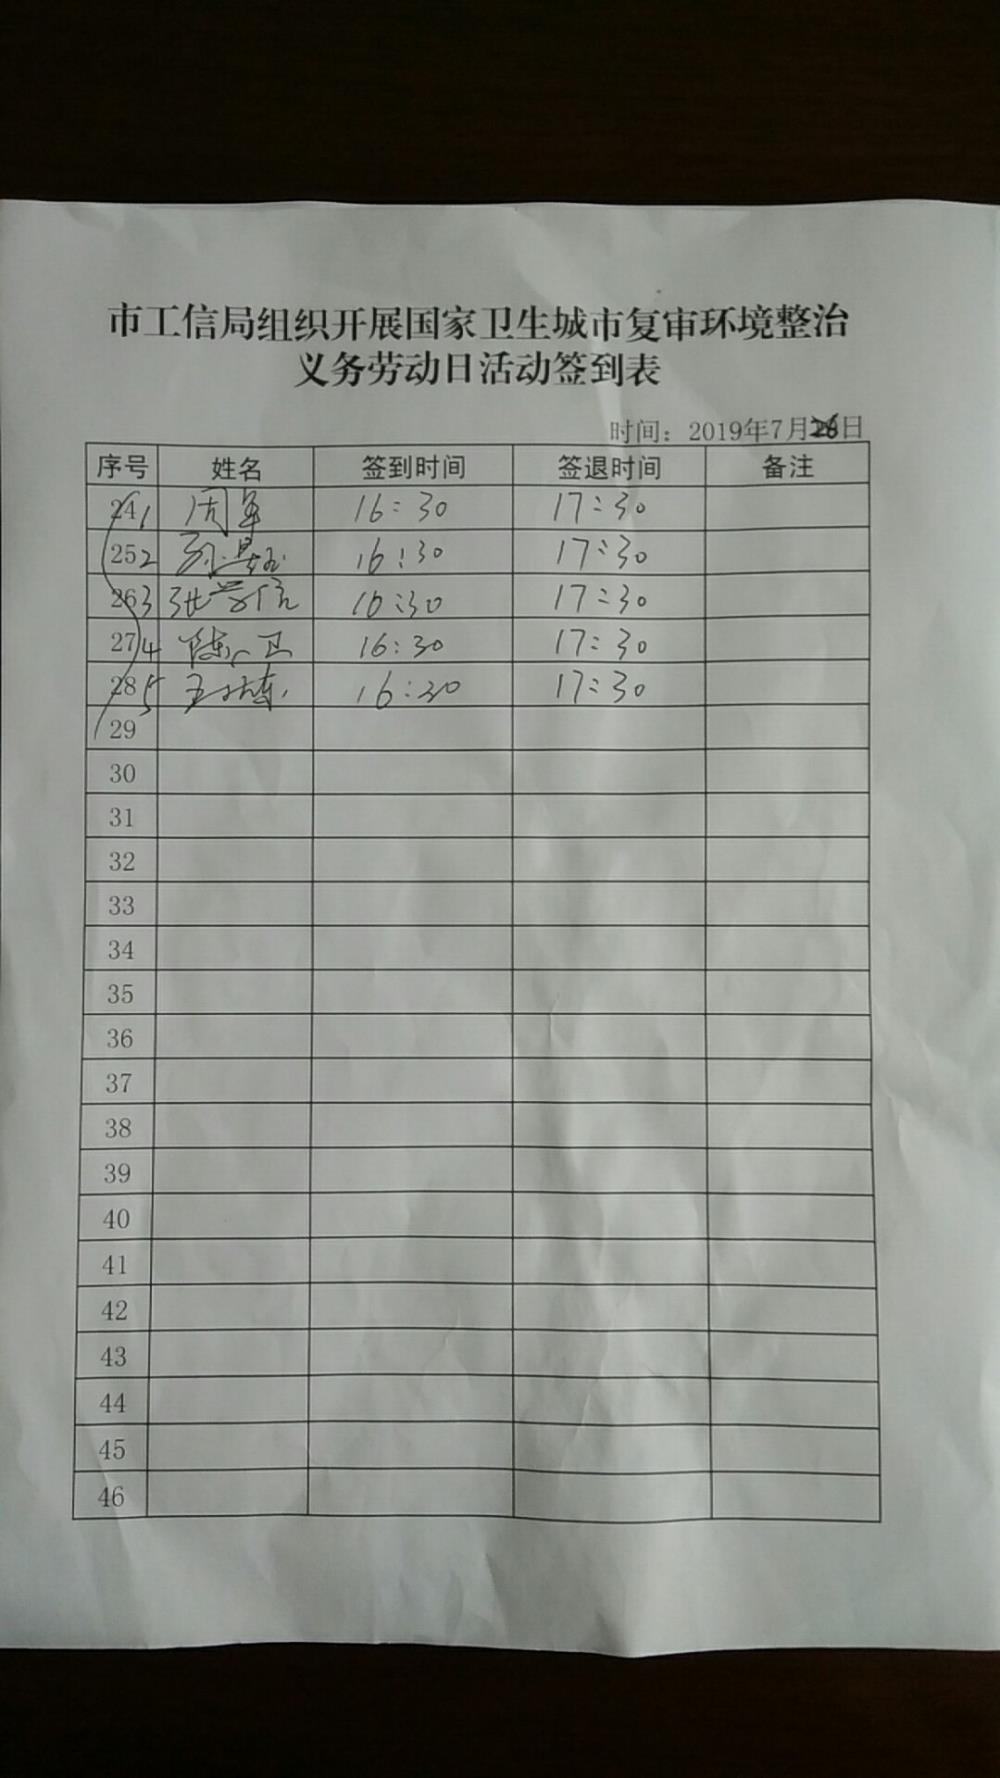 市工信局组织开展国家卫生城市复审环境整治
义务劳动日活动签到表
时间：2019年7月26日
序号 姓名 签到时间 签退时间 备注
24 1 周军 16:30 17:30
25 2 16:30 17:30
26 3 张学信 16:30 17:30
27 4 陈卫 16:30 17:30
28 5 王 16:30 17:30
29
30
31
32
33
34
35
36
37
38
39
40
41
42
43
44
45
46